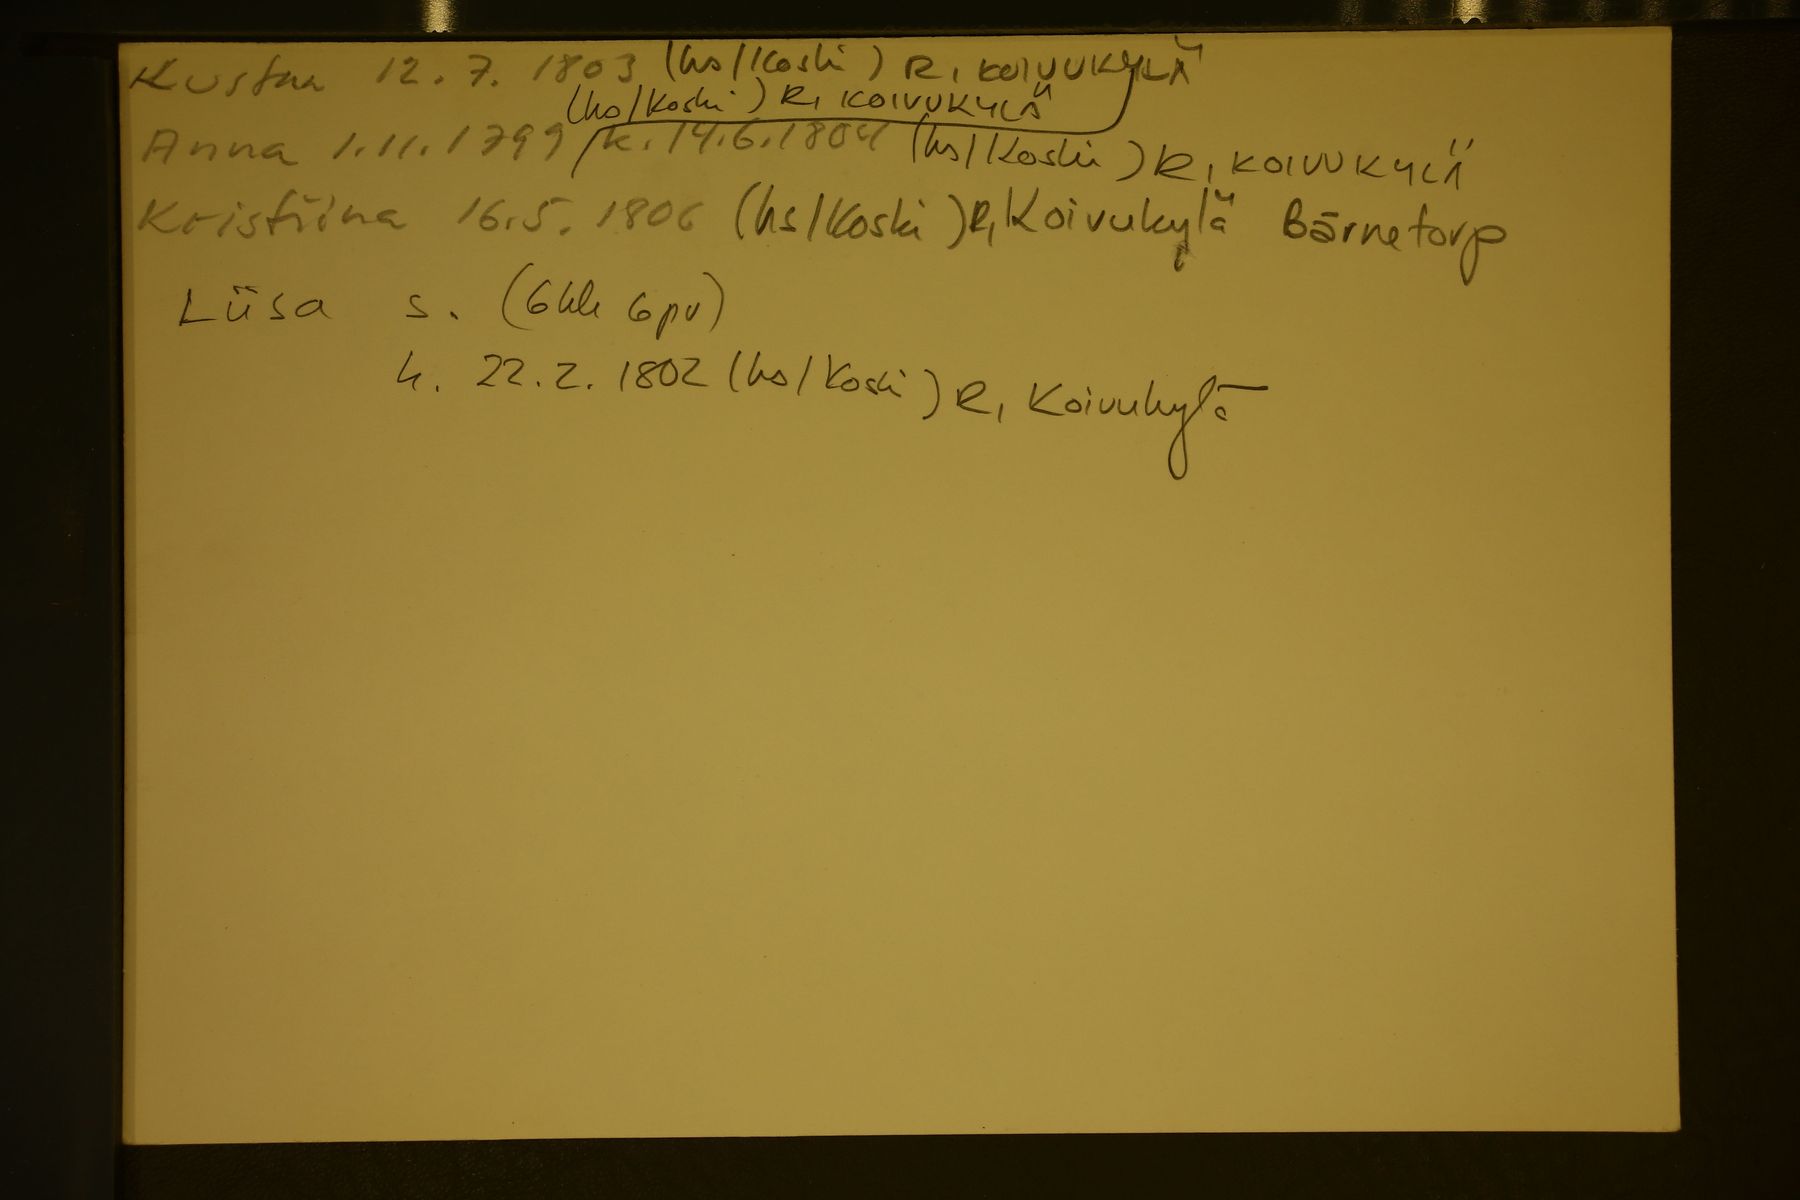 Kustaa 12. 7. 1803 (hs/Koski) R, KOIVUKYLÄ
(hs/Koski) R, KOIVUKYLÄ
Anna 1.11.1799 k. 14.6.1804 (hs/Koski) R, KOIVUKYLÄ
Kristiina 16.5. 1806 (hs/Koski) R, Koivukylä Bärnetorp
Liisa s. (6kk 6pv)
k. 22.2. 1802 (hs/Koski) R, Koivukylä